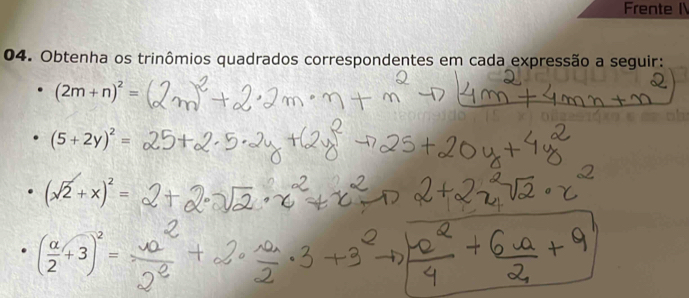 Frente IV
04. Obtenha os trinômios quadrados correspondentes em cada expressão a seguir:
• (2m + n)² = (2m)² + 2·2m·n + n² → 4m² + 4mn + n²
• (5 + 2y)² = 25 + 2·5·2y + (2y)² → 25 + 20y + 4y²
• (√2 + x)² = 2 + 2·√2·x² + x² → 2 + 2x²√2·x²
• (a/2 + 3)² = a²/2² + 2·a/2·3 + 3² → a²/4 + 6a/2 + 9